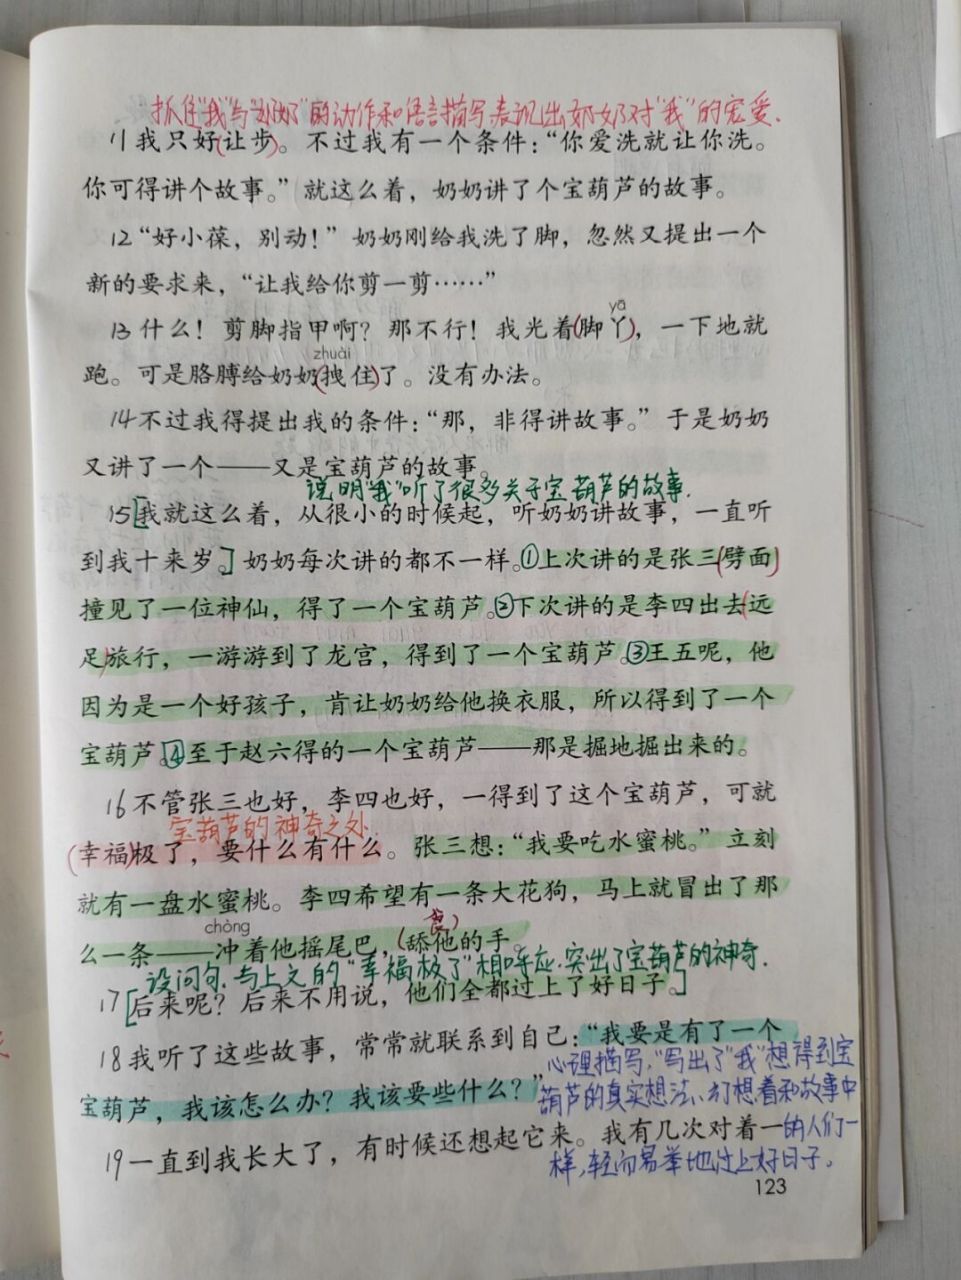 抓住"我"与"奶奶"的动作和语言描写,表现出奶奶对"我"的宠爱.
11我只好(让步)。不过我有一个条件:“你爱洗就让你洗。
你可得讲个故事。”就这么着,奶奶讲了个宝葫芦的故事。
12“好小葆,别动!”奶奶刚给我洗了脚,忽然又提出一个
新的要求来,“让我给你剪一剪……”
yā
13什么!剪脚指甲啊?那不行!我光着(脚丫),一下地就
zhuài
跑。可是胳膊给奶奶(拽住)了。没有办法。
14不过我得提出我的条件:“那,非得讲故事。”于是奶奶
又讲了一个——又是宝葫芦的故事。
说明"我"听了很多关于宝葫芦的故事.
15[我就这么着,从很小的时候起,听奶奶讲故事,一直听
到我十来岁。]奶奶每次讲的都不一样。①上次讲的是张三(劈面)
撞见了一位神仙,得了一个宝葫芦。②下次讲的是李四出去(远
足)旅行,一游游到了龙宫,得到了一个宝葫芦。③王五呢,他
因为是一个好孩子,肯让奶奶给他换衣服,所以得到了一个
宝葫芦。④至于赵六得的一个宝葫芦——那是掘地掘出来的。
16不管张三也好,李四也好,一得到了这个宝葫芦,可就
宝葫芦的神奇之处.
(幸福)极了,要什么有什么。张三想:“我要吃水蜜桃。”立刻
就有一盘水蜜桃。李四希望有一条大花狗,马上就冒出了那
chòng
么一条——冲着他摇尾巴,(舔他的手。
设问句.与上文的"幸福极了"相呼应.突出了宝葫芦的神奇.
17[后来呢?后来不用说,他们全都过上了好日子。]
18我听了这些故事,常常就联系到自己:“我要是有了一个
心理描写,"写出了"我"想得到宝
宝葫芦,我该怎么办?我该要些什么?”
葫芦的真实想法、幻想着和故事中
19一直到我长大了,有时候还想起它来。我有几次对着一
的人们一
样,轻而易举地过上好日子.
123